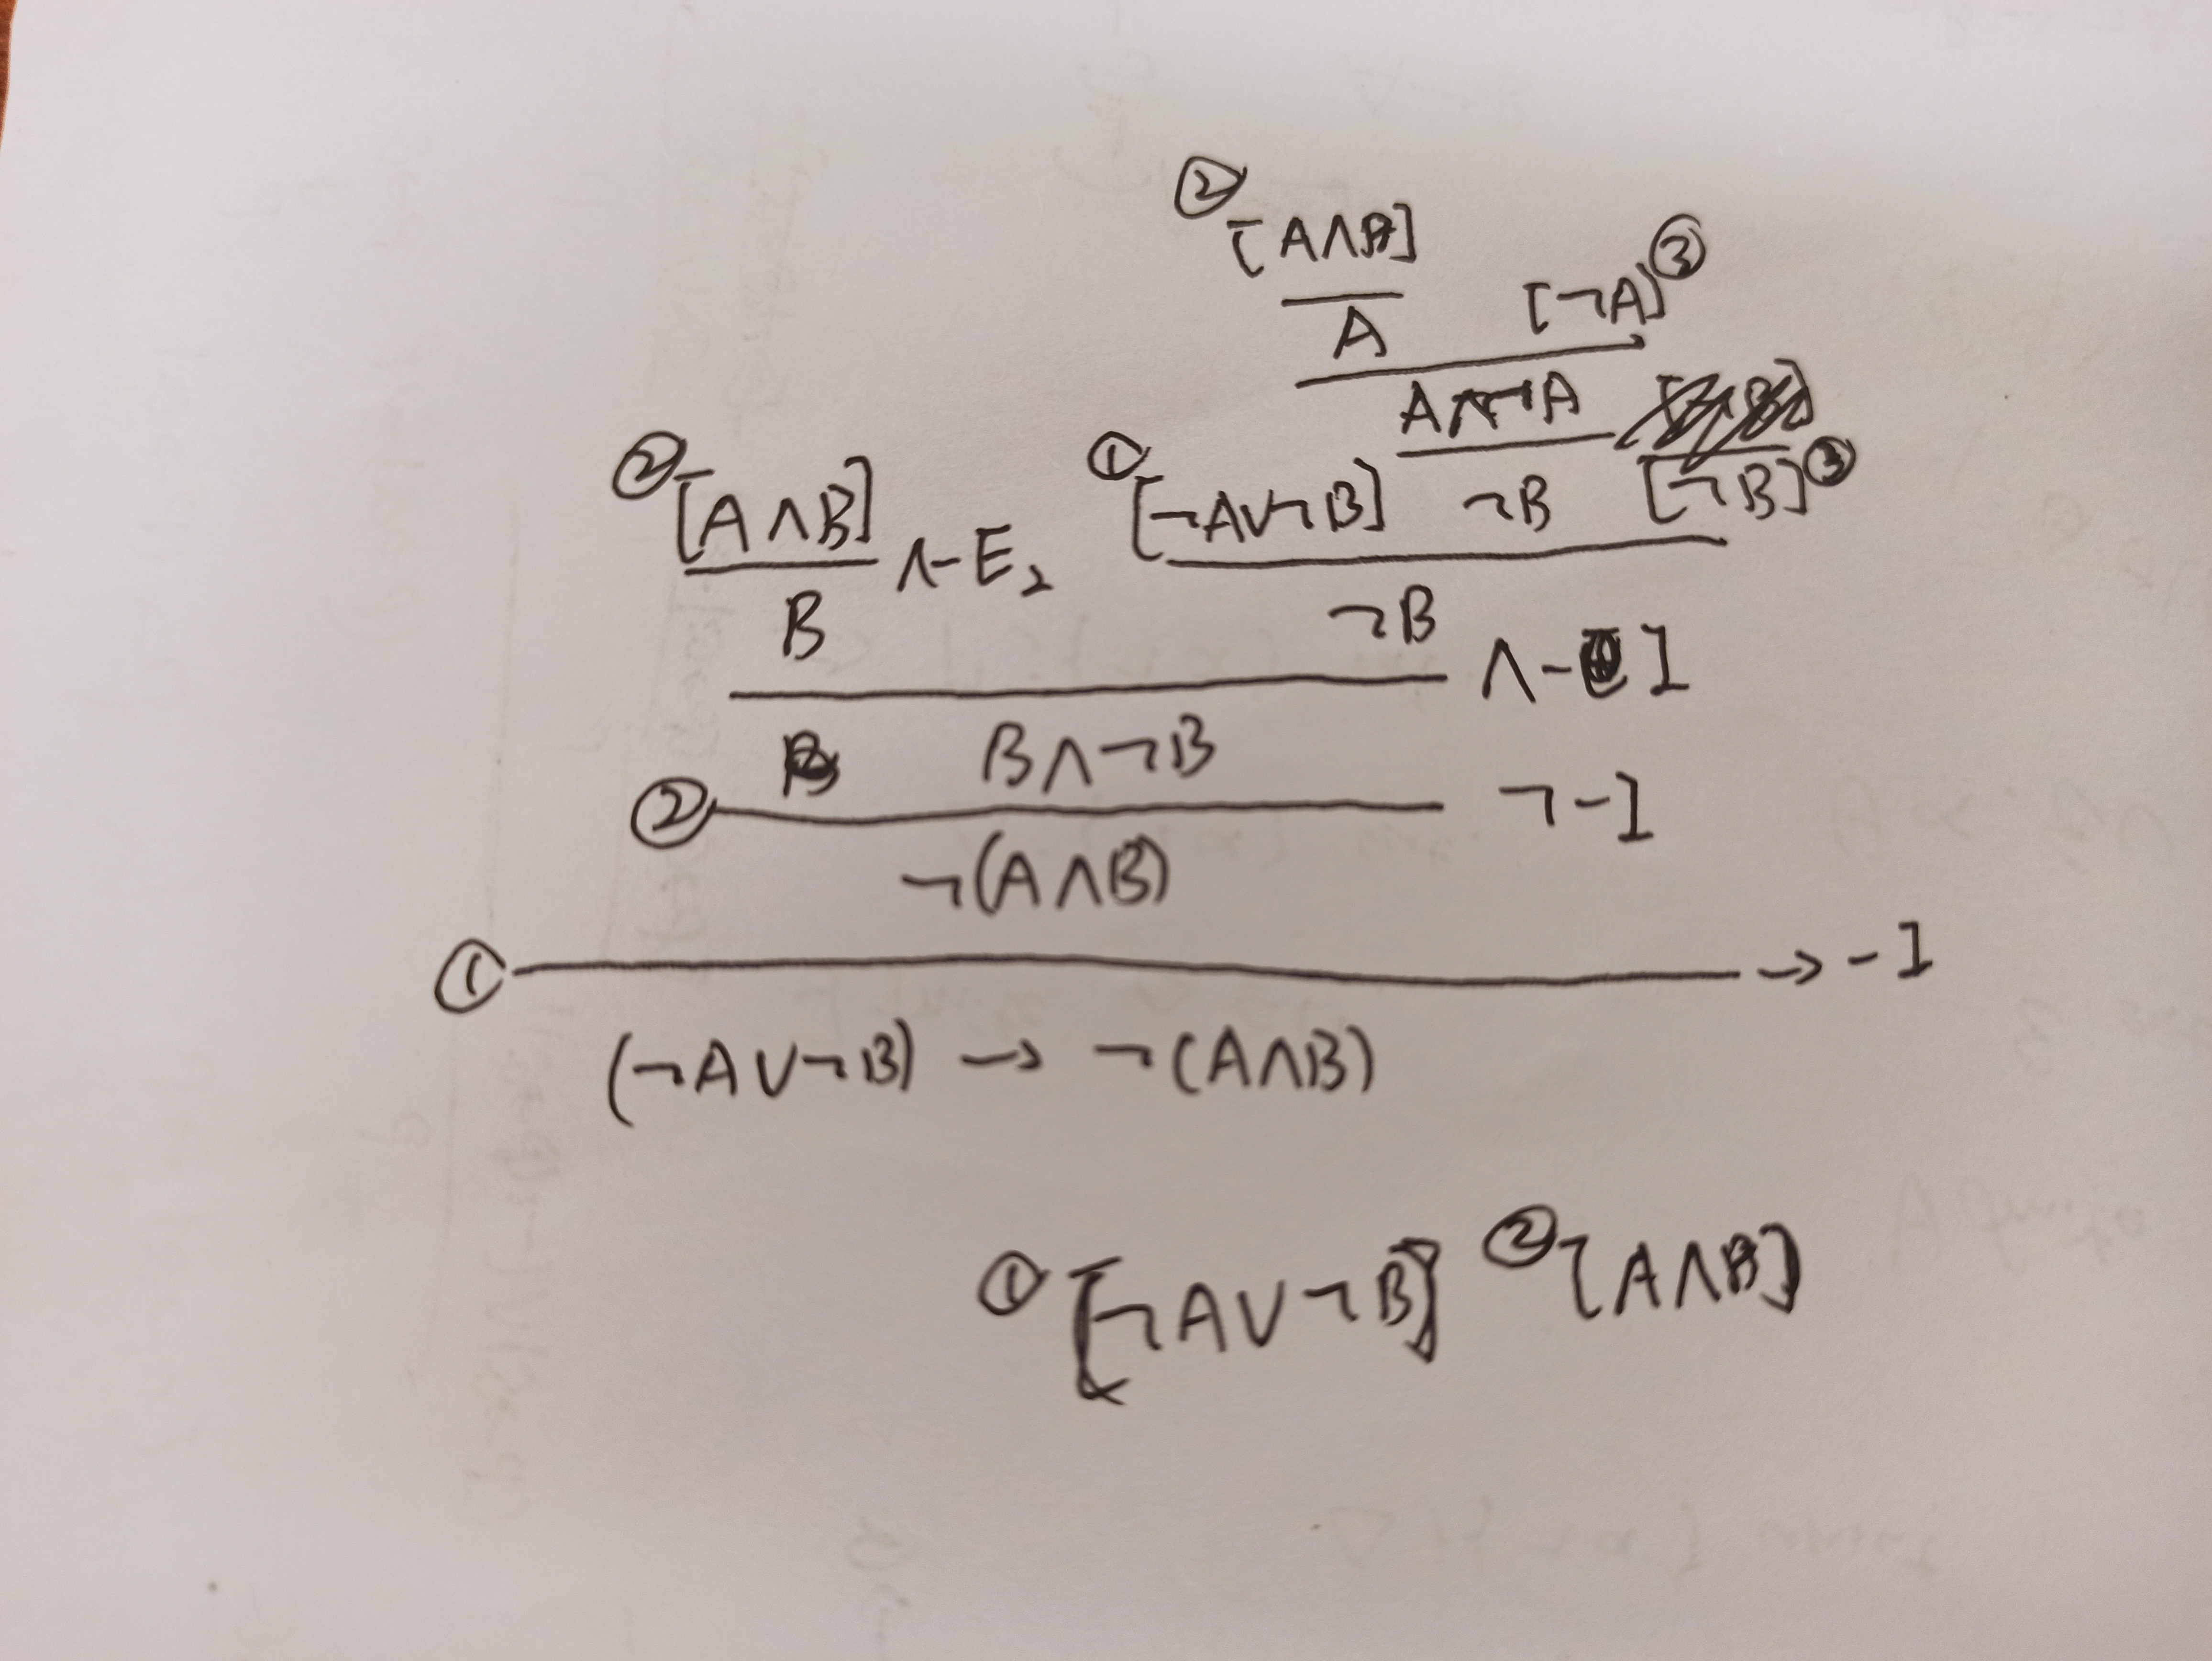 ② [A∧B]
A [¬A]③
A∧¬A
② [A∧B] ∧-E₂ ① [¬A∨¬B] ¬B [¬B]③
B ¬B ∧-I
B∧¬B
② ¬-I
¬(A∧B)
① →-I
(¬A∨¬B) → ¬(A∧B)
① [¬A∨¬B] ② [A∧B]